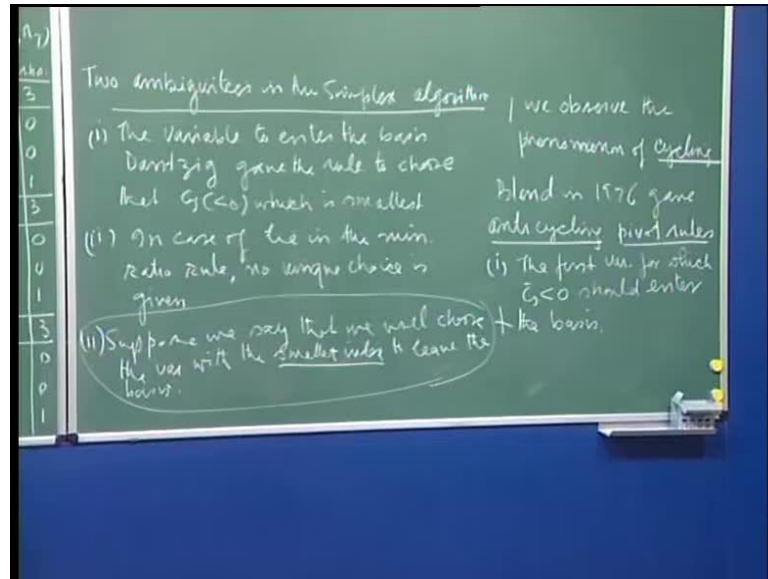 n7)
3
0
0
1
3
0
0
1
3
0
0
1
Two ambiguitees in the Simplex algorithm
(i) The variable to enter the basis
Dantzig gave the rule to chose
that c̄j(<0) which is smallest
(ii) In case of tie in the min.
Ratio Rule, no unique choice is
given
(ii) Suppose we say that we will chose
the var with the smallest index to leave the
basis.
we observe the
phenomenon of cycling
Bland in 1976 gave
anti cycling pivot rules
(i) The first var. for which
c̄j<0 should enter
the basis.